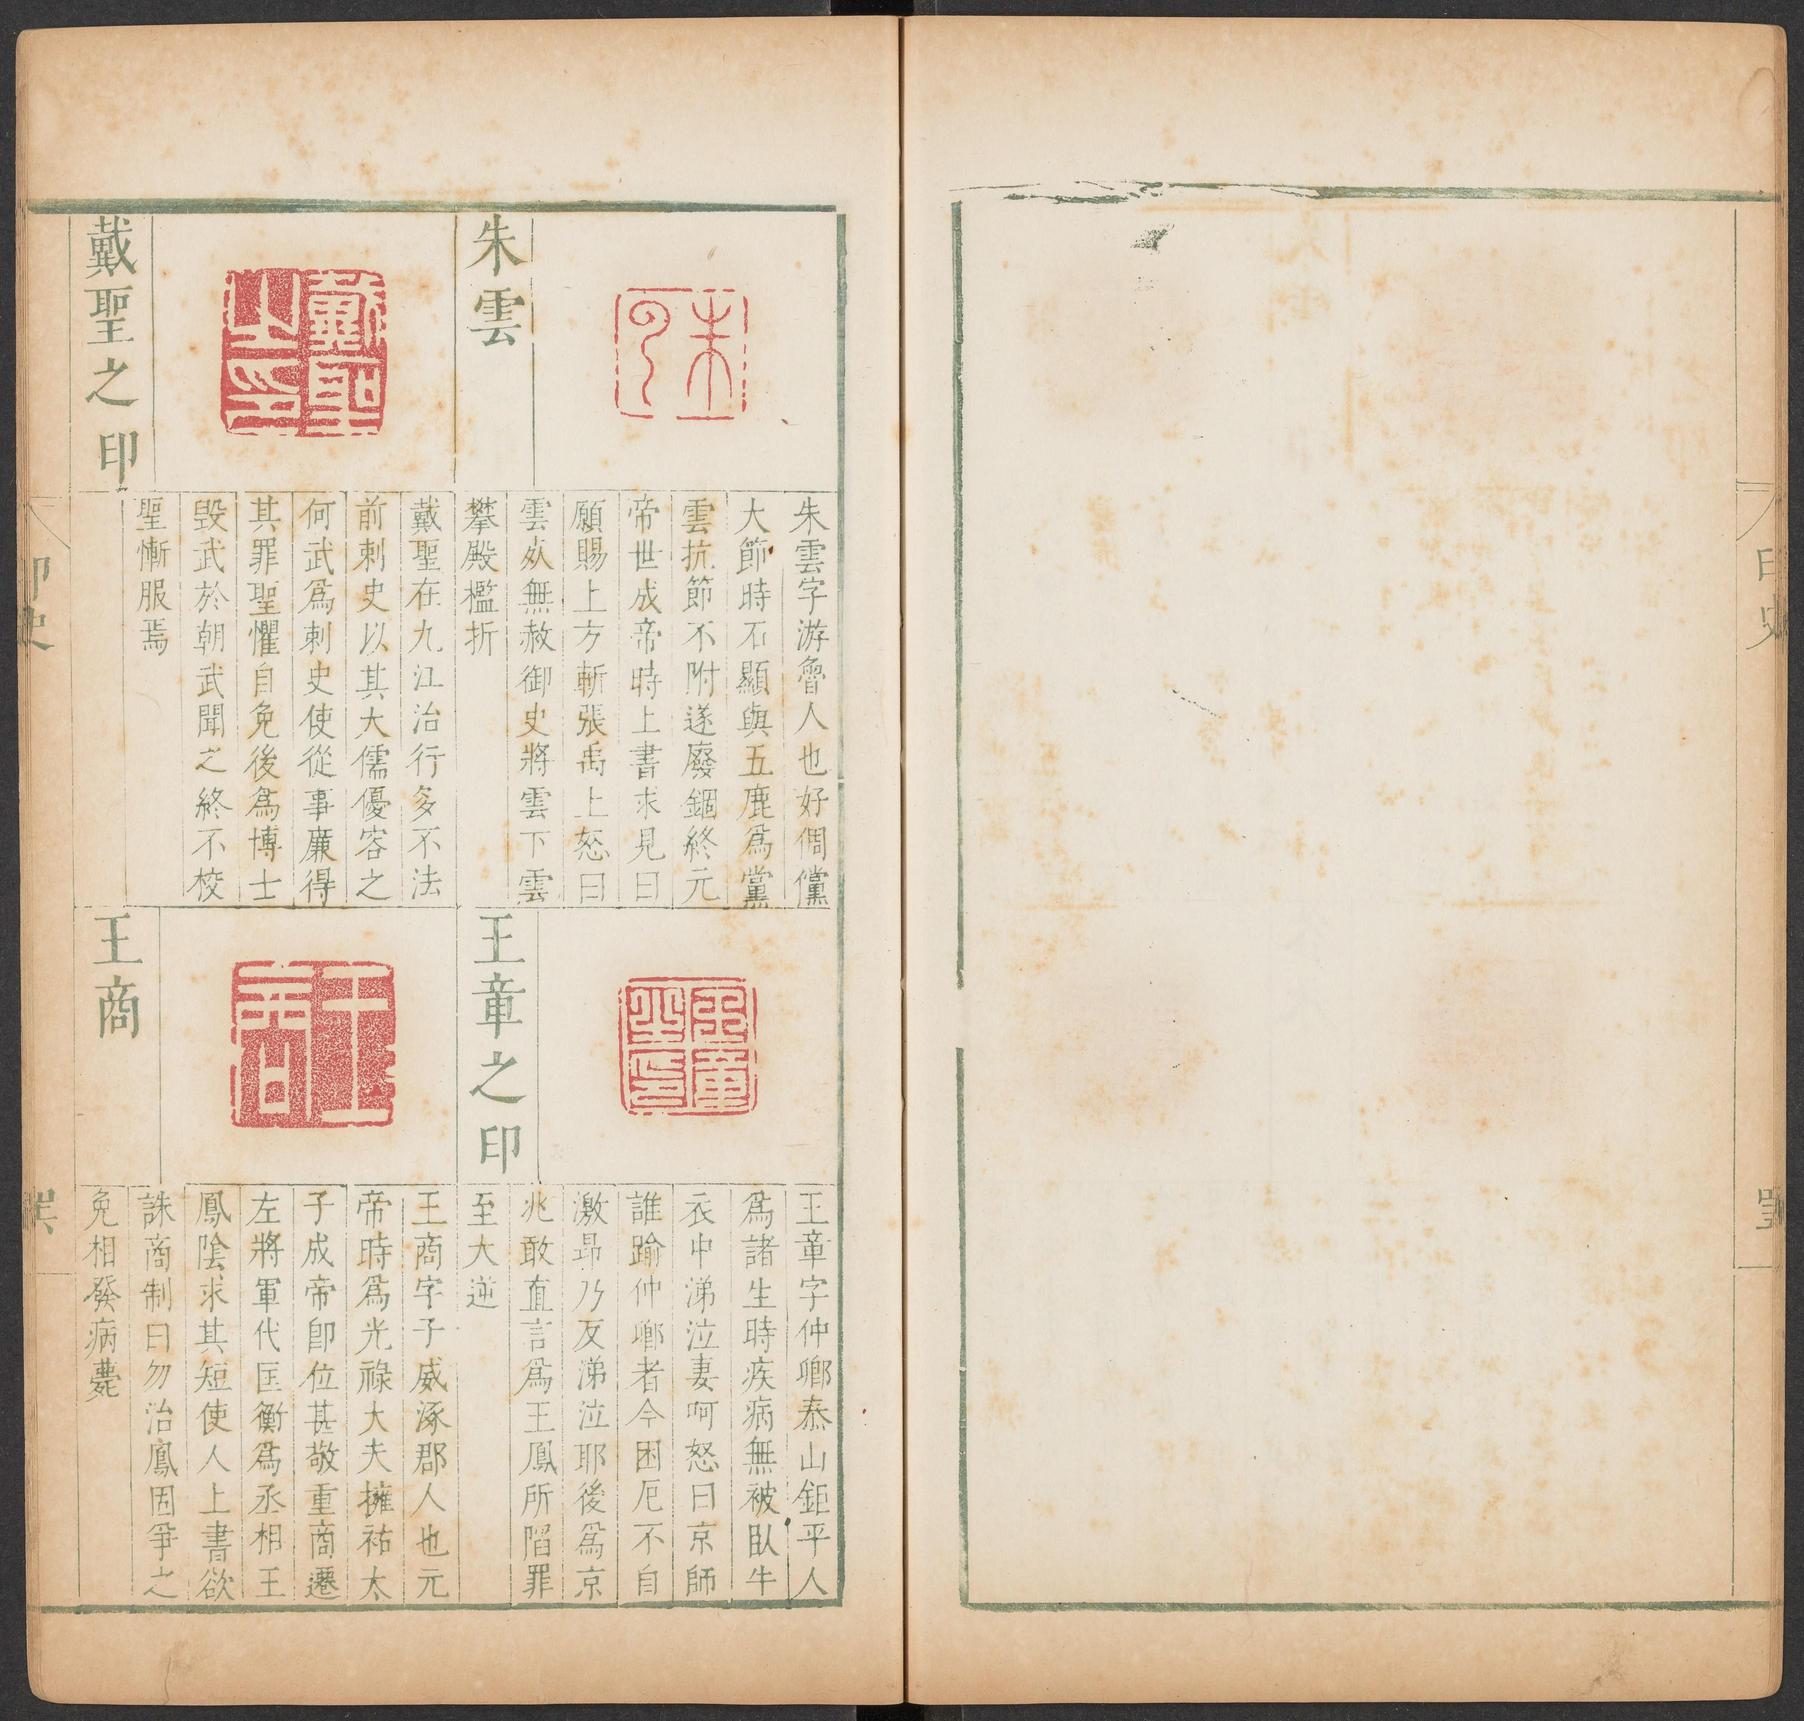 印史
朱雲
朱雲字游魯人也好倜儻
大節時石顯與五鹿爲黨
雲抗節不附遂廢錮終元
帝世成帝時上書求見曰
願賜上方斬張禹上怒曰
雲死無赦御史將雲下雲
攀殿檻折
戴聖之印
戴聖之印
戴聖在九江治行多不法
前刺史以其大儒優容之
何武爲刺史使從事廉得
其罪聖懼自免後爲博士
毁武於朝武聞之終不校
聖慚服焉
王章之印
王章之印
王章字仲卿泰山鉅平人
爲諸生時疾病無被臥牛
衣中涕泣妻呵怒曰京師
誰踰仲卿者今困厄不自
激昻乃反涕泣耶後爲京
兆敢直言爲王鳳所陷罪
至大逆
王商
王商
王商字子威涿郡人也元
帝時爲光祿大夫擁祐太
子成帝卽位甚敬重商遷
左將軍代匡衡爲丞相王
鳳陰求其短使人上書欲
誅商制曰勿治鳳固爭之
免相發病薨
印史